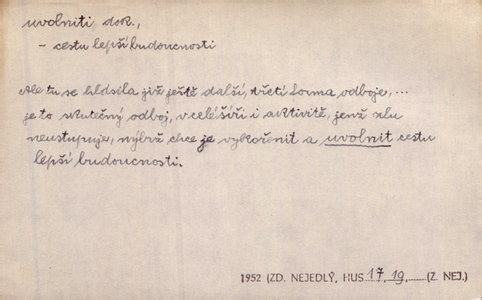 uvolniti dok.,
– cestu lepší budoucnosti
Ale tu se hlásila již ještě další, třetí forma odboje, ...
je to skutečný odboj, v celé šíři i aktivitě, jenž zlu
neustupuje, nýbrž chce je vykořenit a uvolnit cestu
lepší budoucnosti.
1952 (ZD. NEJEDLÝ, HUS 17, 19, (Z. NEJ.)